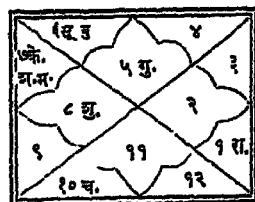 ६सू बु ४
७के. ५ गु. ३
श. म.
८ शु. २
९ ११ १ रा.
१० च. १२